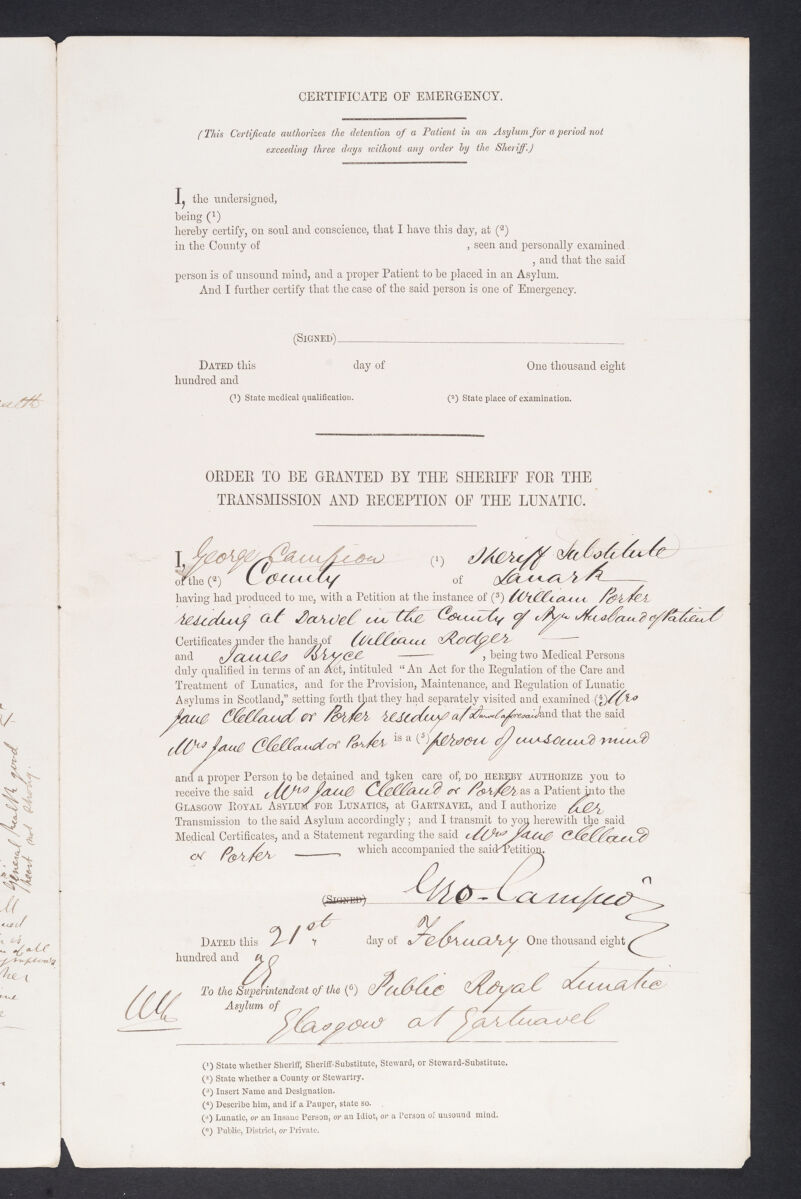 CERTIFICATE OF EMERGENCY.
(This Certificate authorizes the detention of a Patient in an Asylum for a period not
exceeding three days without any order by the Sheriff.)
I, the undersigned,
being (¹)
hereby certify, on soul and conscience, that I have this day, at (²)
in the County of , seen and personally examined
, and that the said
person is of unsound mind, and a proper Patient to be placed in an Asylum.
And I further certify that the case of the said person is one of Emergency.
(SIGNED)
DATED this day of One thousand eight
hundred and
(¹) State medical qualification. (²) State place of examination.
ORDER TO BE GRANTED BY THE SHERIFF FOR THE
TRANSMISSION AND RECEPTION OF THE LUNATIC.
I, George Campion (¹) Sheriff Substitute
of the (²) County of Lanark
having had produced to me, with a Petition at the instance of (³) William Porter
residing at Darvel in the County of Ayr Husband of Patient
Certificates under the hands of William Rodger
and James Bryce , being two Medical Persons
duly qualified in terms of an Act, intituled "An Act for the Regulation of the Care and
Treatment of Lunatics, and for the Provision, Maintenance, and Regulation of Lunatic
Asylums in Scotland," setting forth that they had separately visited and examined (⁴) Mrs
Jane Clelland or Porter residing at Darvel aforesaid and that the said
Mrs Jane Clelland or Porter is a (⁵) person of unsound mind
and a proper Person to be detained and taken care of, DO HEREBY AUTHORIZE you to
receive the said Mrs Jane Clelland or Porter as a Patient into the
GLASGOW ROYAL ASYLUM FOR LUNATICS, at GARTNAVEL, and I authorize her
Transmission to the said Asylum accordingly; and I transmit to you herewith the said
Medical Certificates, and a Statement regarding the said Mrs Jane Clelland
or Porter which accompanied the said Petition.
(SIGNED) Geo. Campion
DATED this 21st day of February One thousand eight
hundred and
To the Superintendent of the (⁶) Public Royal Lunatic
Asylum of
Glasgow at Gartnavel
(¹) State whether Sheriff, Sheriff-Substitute, Steward, or Steward-Substitute.
(²) State whether a County or Stewartry.
(³) Insert Name and Designation.
(⁴) Describe him, and if a Pauper, state so.
(⁵) Lunatic, or an Insane Person, or an Idiot, or a Person of unsound mind.
(⁶) Public, District, or Private.
General health good
heart not strong.